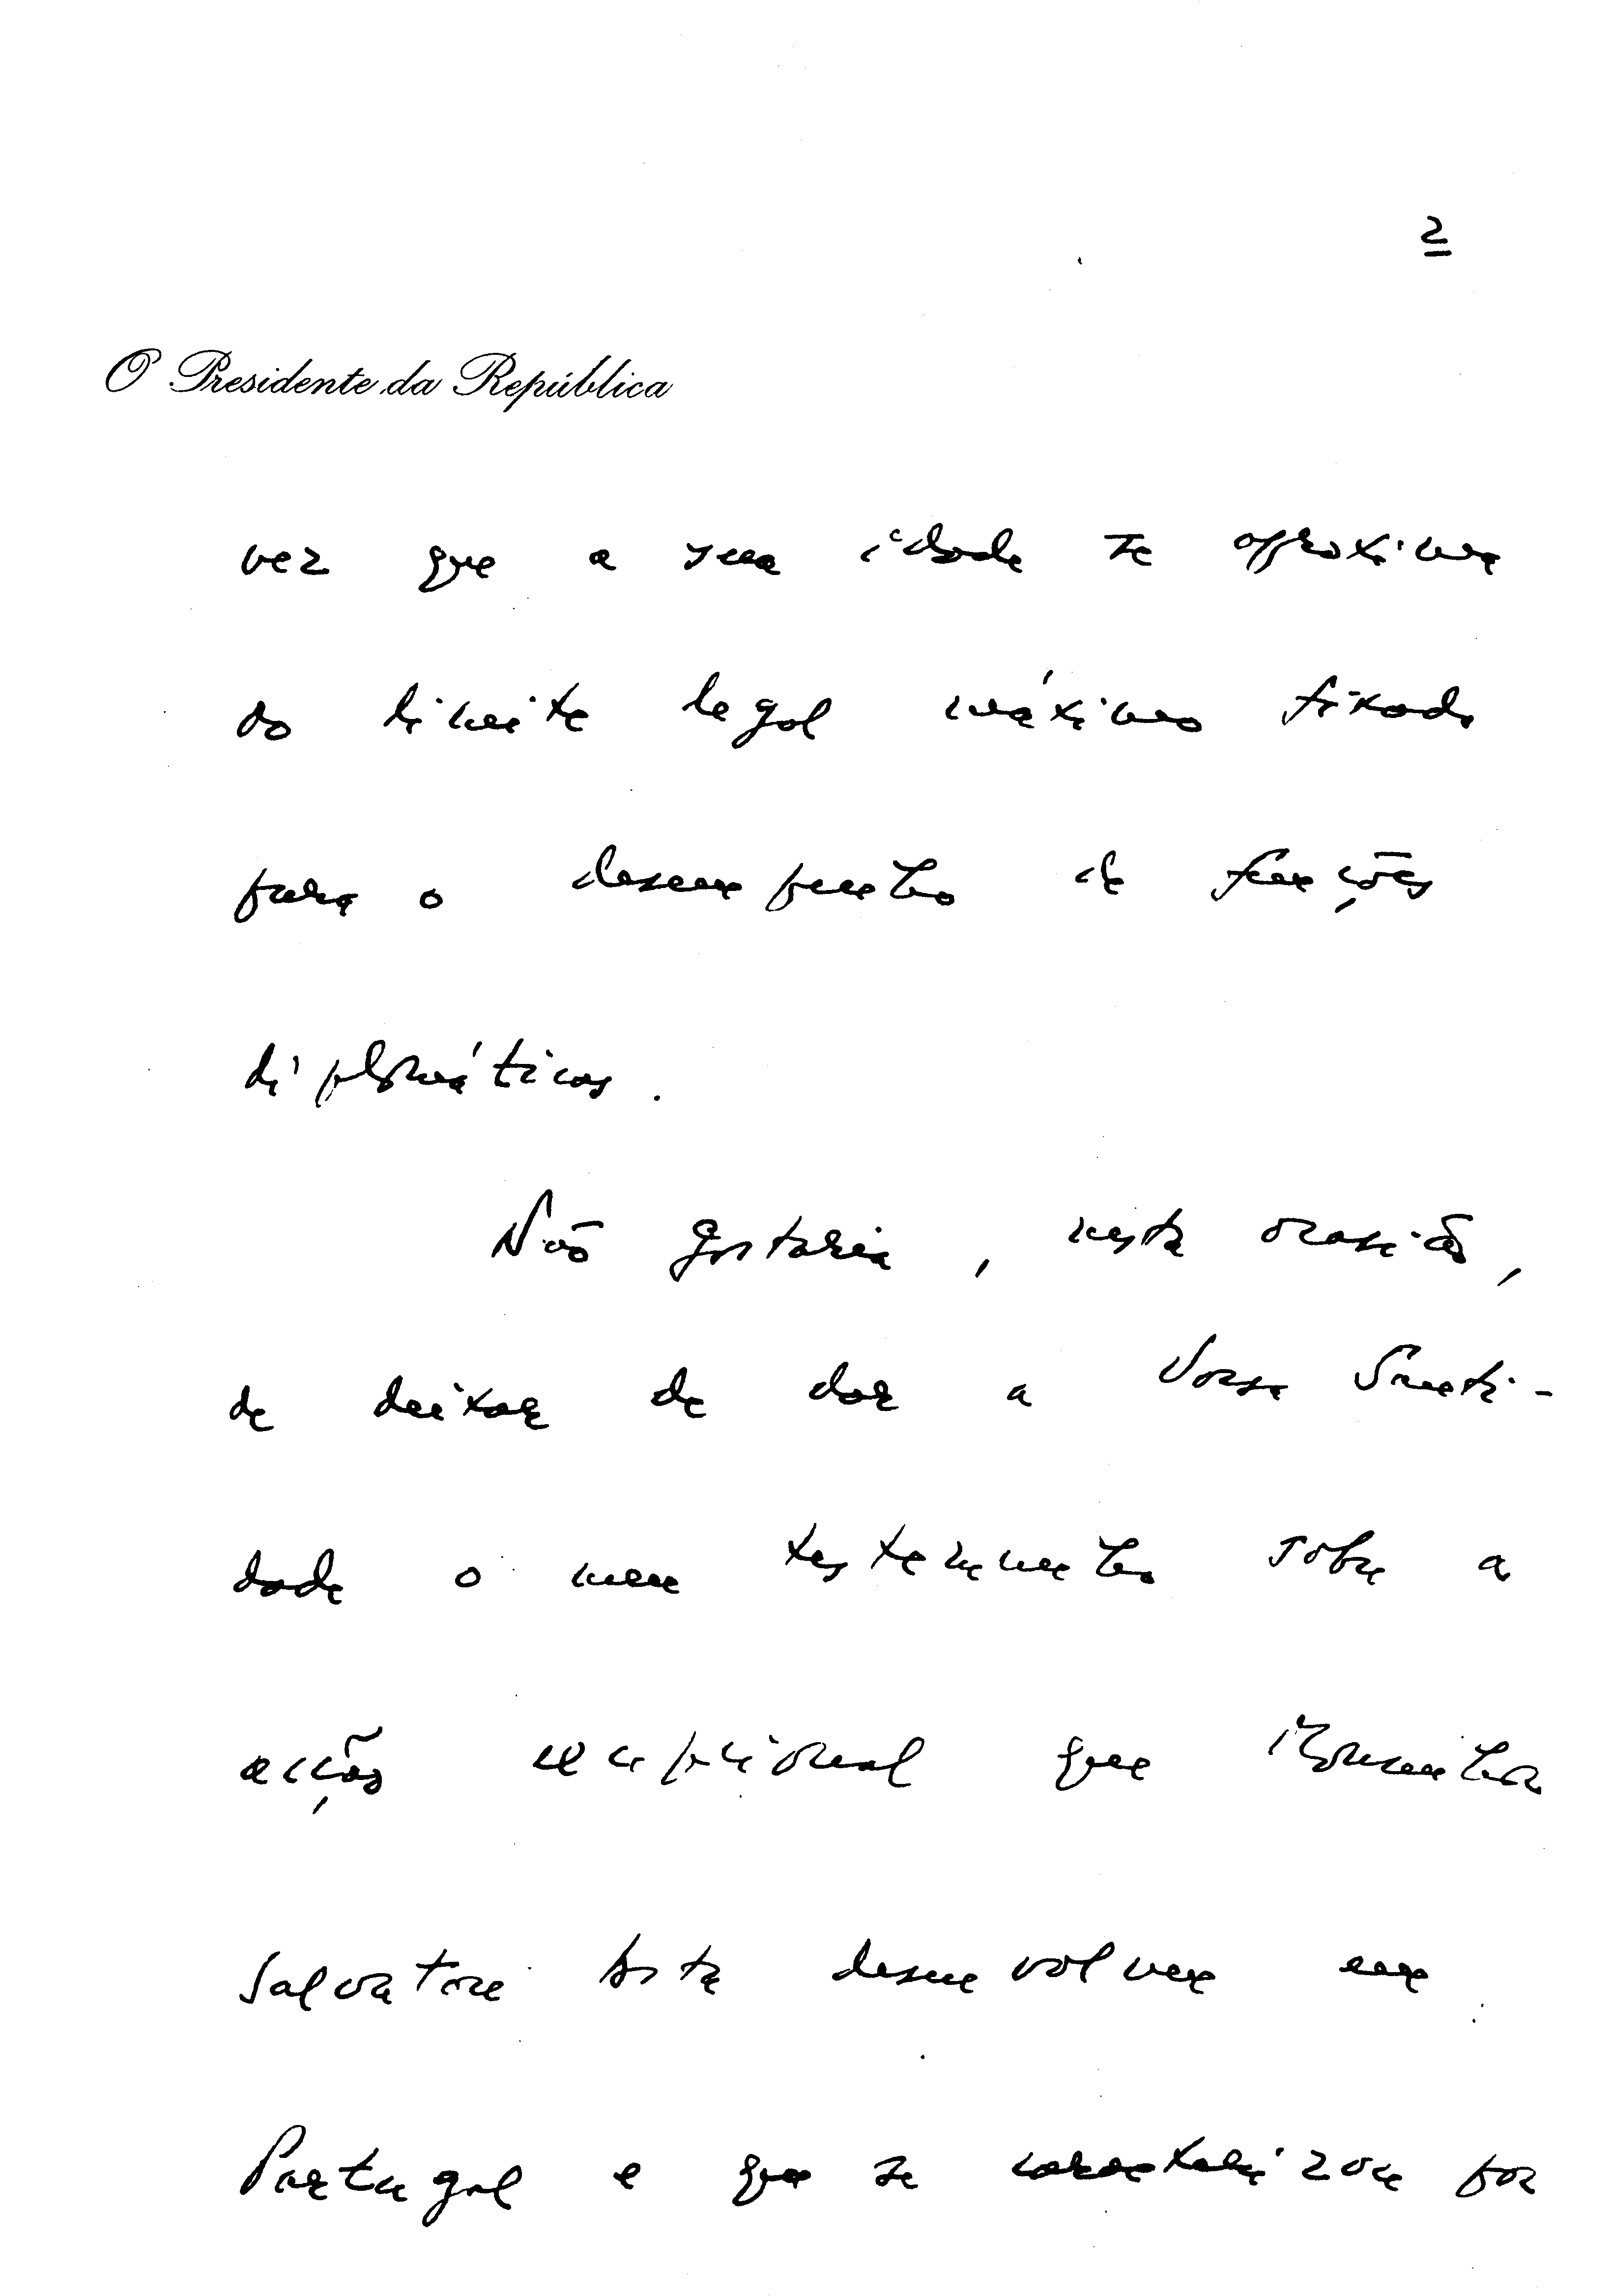 2
O Presidente da República
vez que a sua idade se aproxima
do limite legal máximo fixado
para o desempenho de funções
diplomáticas.
Não gostaria, nesta ocasião,
de deixar de dar a Vossa Santi-
dade o meu testemunho sobre a
acção excepcional que Monsenhor
Salvatore Asta desenvolveu em
Portugal e que se caracterizou por